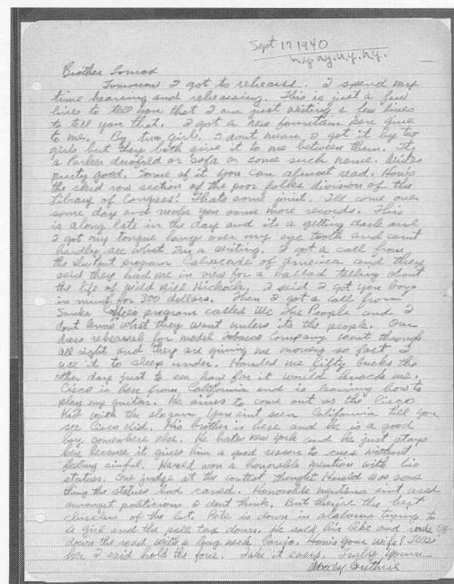 Sept 17 1940
Ny. Ny. Ny. Ny.
Brother Lomax
Tomorrow I got to rehearse. I spend my
time hearsing and rehearsing. This is just a few
lines to tell you that I am just writing a few lines
to tell you that. I got a new fountain pen give
to me. By two girls. I dont mean I got it by two
girls but they both give it to me between them. Its
a Parker duofold or sofa or some such name. Writes
purty good. Some of it you can almost read. Hows
the skid row section of the poor folks division of the
Library of Congress? Thats some joint. Ill come over
some day and make you some more records. This
is along late in the day and its a getting dark and
I got my tongue hung over my eye tooth and cant
hardly see what Im a writing. I got a call from
the Dupont program Calvacade of America and they
said they had me in view for a ballad telling about
the life of Wild Bill Hickock, I said I got you boys
in mind for 300 dollars. Then I got a call from
Sanka Coffee program called We The People and I
dont know what they want unless its the people. Our
dress rehearsal for model tobacco Company went through
all right and they are giving me money so fast I
use it to sleep under. Handed me fifty bucks the
other day just to see how far it would knock me.
Cisco is here from California and is learning how to
play my guitar. He aims to come out as the Cisco
Kid with the slogan, You aint seen California till you
see Cisco Kid. His brother is here and he is a good
boy somewhere else. He hates New York and he just stays
here because it gives him a good reason to cuss without
feeling sinful. Harold won a honorable mention with his
statues. One judge at the contest thought Harold was some
thing the statues had carved. Honorable mentions aint used
amongst politicians I dont think. But theyre the best
chiselers of the lot. Pete is down in alabama trying to
a girl and the poll tax down. He sold his bike and
down the road with a long neck banjo. Hows your wife?
I said hold the fone. Take it easy. Truly Yours
Woody Guthrie